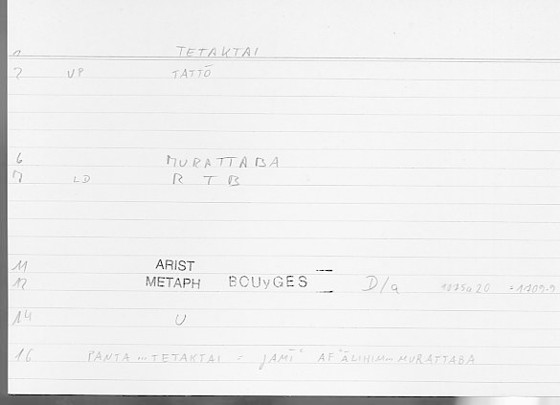 1 TETAKTAI
2 VP TATTŌ
6 MURATTABA
7 LD R T B
11 ARIST
12 METAPH BOUyGES D/a 1075a20 = 1709.9
14 U
16 PANTA ... TETAKTAI = JAMĪʿ AFʿĀLIHIM ... MURATTABA